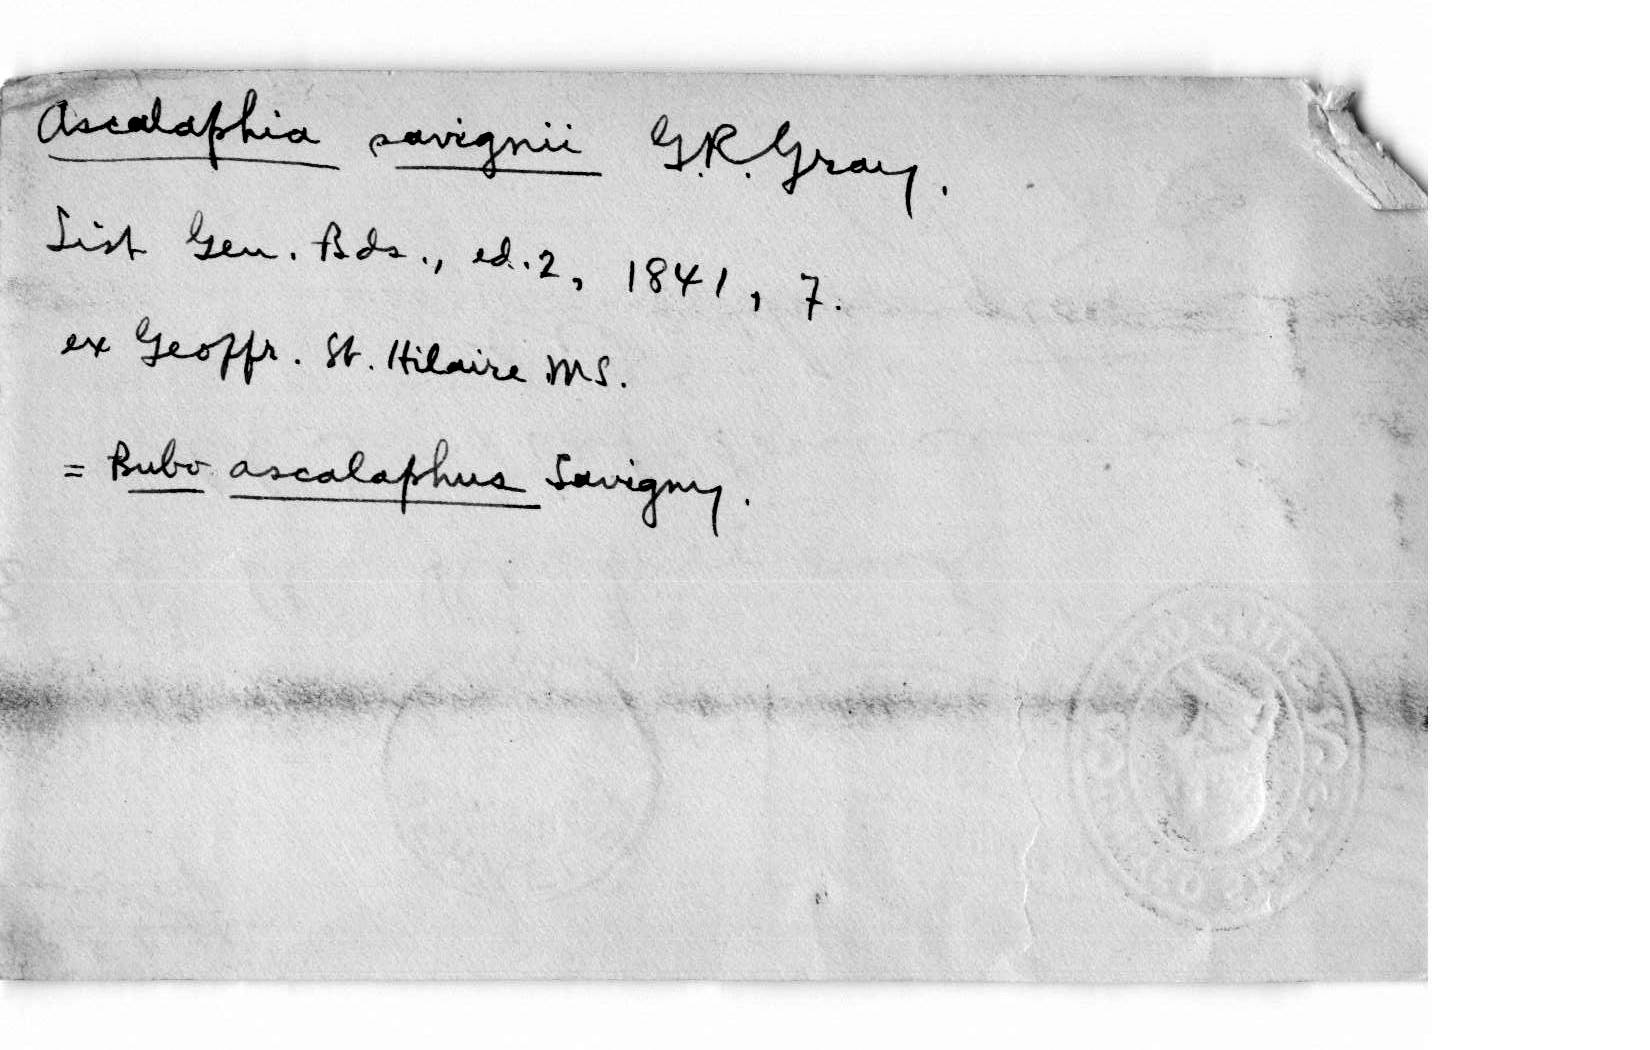 Ascalaphia savignii G.R. Gray.
List Gen. Bds., ed. 2, 1841, 7.
ex Geoffr. St. Hilaire MS.
= Bubo ascalaphus Savigny.